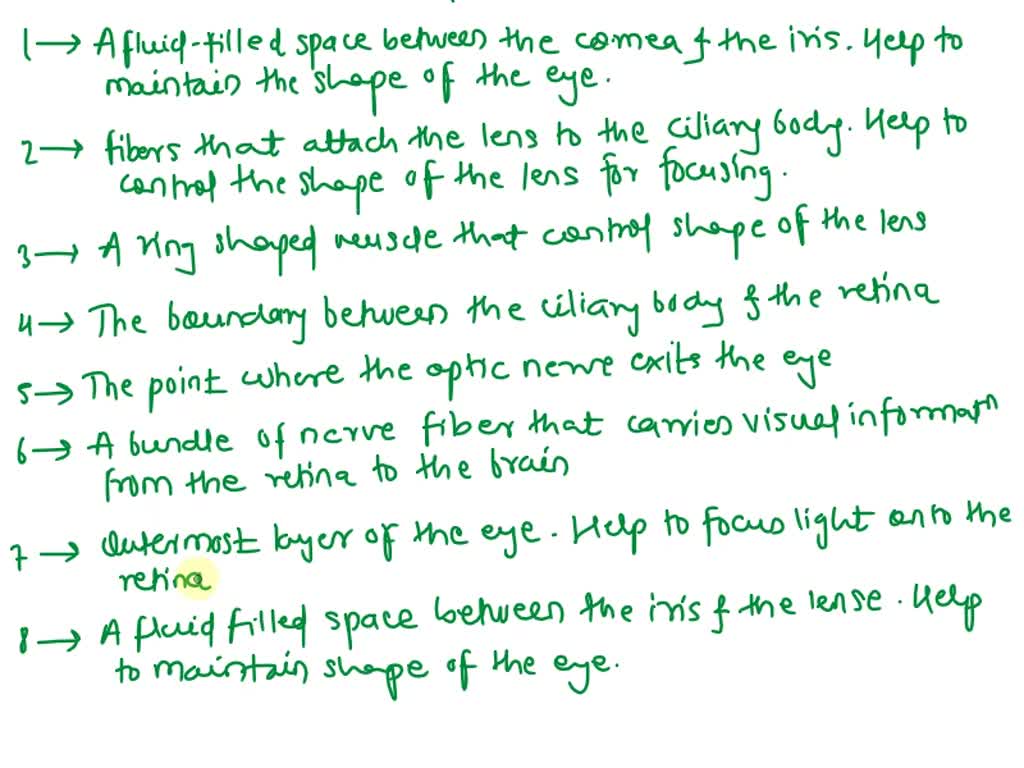 1 → A fluid-filled space between the cornea & the iris. Help to
maintain the shape of the eye.
2 → fibers that attach the lens to the ciliary body. Help to
control the shape of the lens for focusing.
3 → A ring shaped muscle that control shape of the lens
4 → The boundary between the ciliary body & the retina
5 → The point where the optic nerve exits the eye
6 → A bundle of nerve fiber that carries visual informatn
from the retina to the brain
7 → Outermost layer of the eye. Help to focus light onto the
retina
8 → A fluid filled space between the iris & the lense. Help
to maintain shape of the eye.